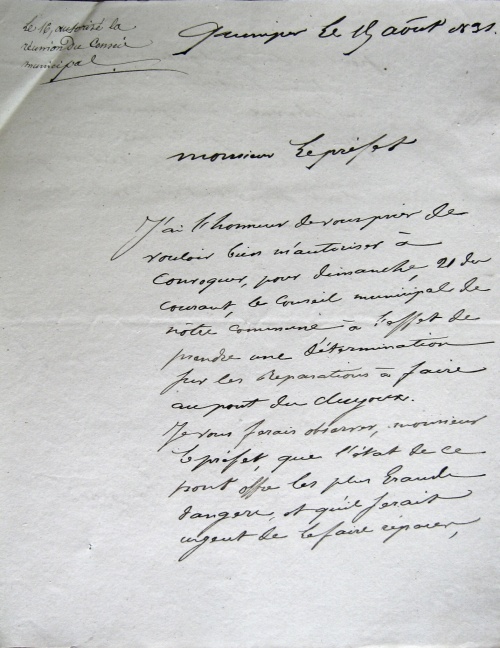 Le 16, autorisé la
réunion Du Conseil
municipal
Quimper Le 15 août 1831.
monsieur Le préfet
J'ai l'honneur de vous prier de
vouloir bien m'autoriser à
Convoquer, pour dimanche 21 du
courant, le Conseil municipal de
notre commune à l'effet de
prendre une détermination
sur les Réparations à faire
au pont du
Je vous ferais observer, monsieur
Le préfet, que l'état de ce
pont offre les plus Grands
dangers, et qu'il serait
urgent de le faire réparer,